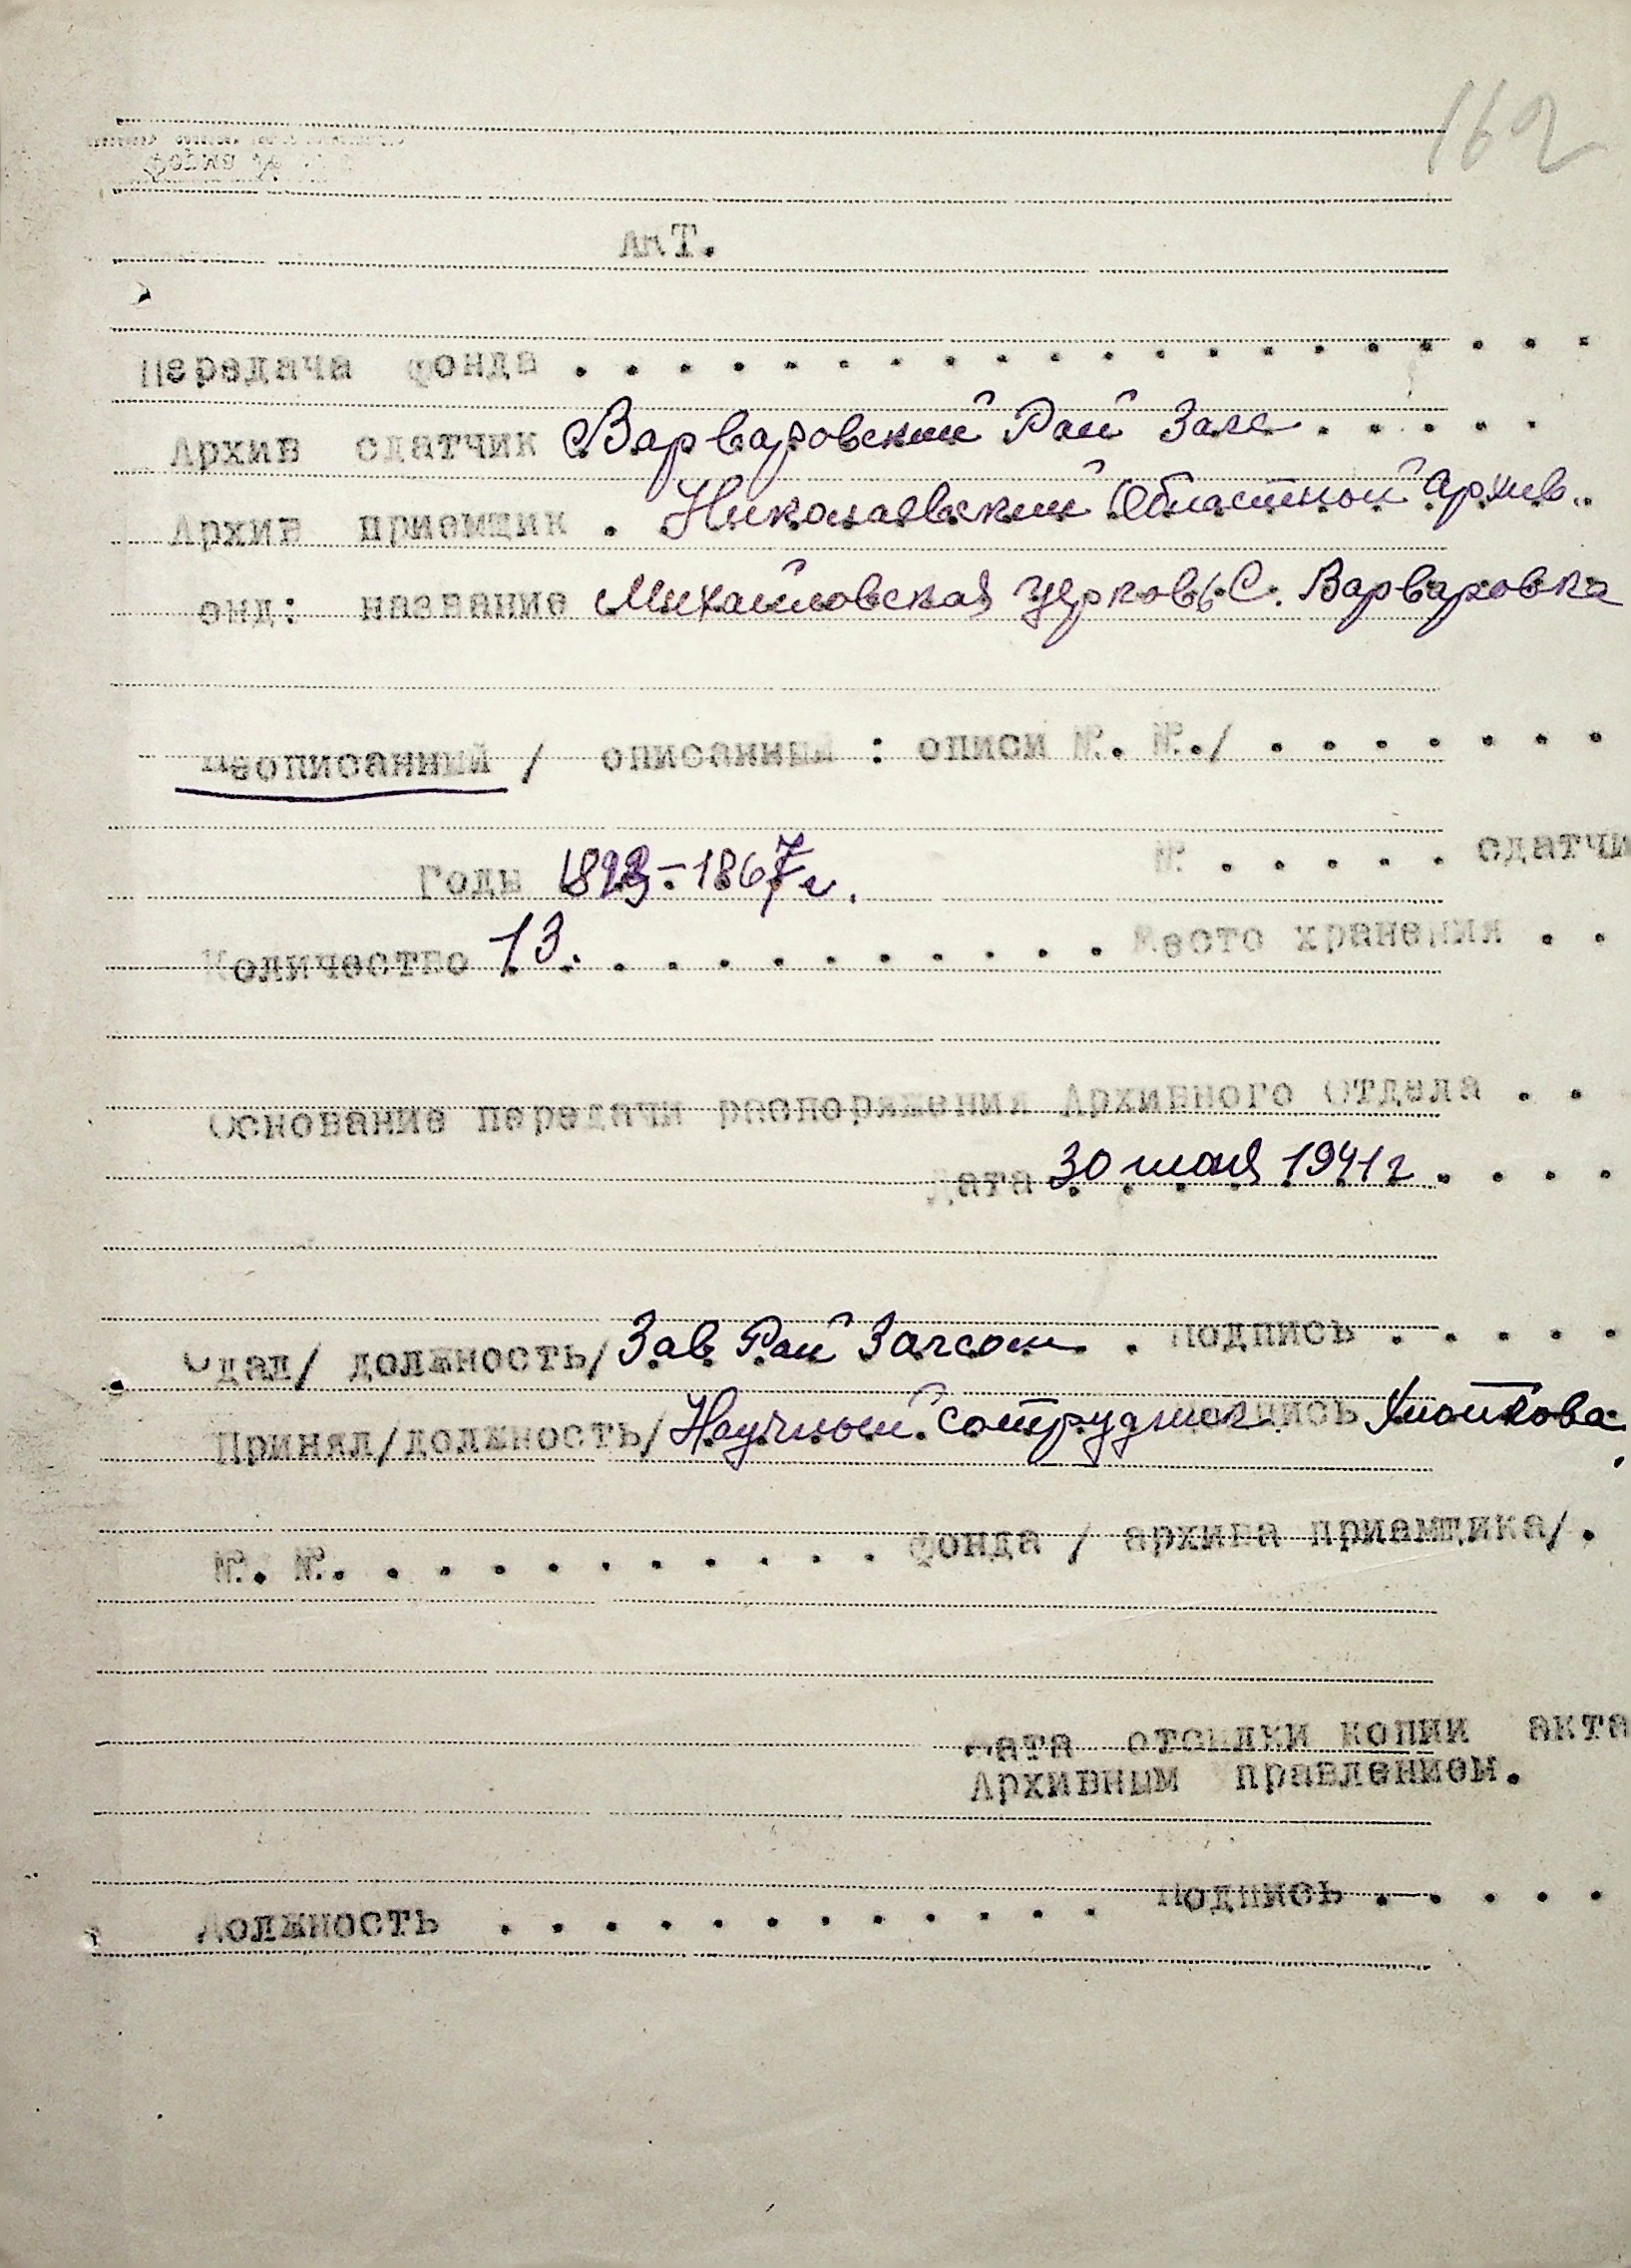 162
АКТ.
Передача фонда . . . . . . . . . . . . . . . . . . . .
Архив сдатчик Варваровский Рай Загс . . . . .
Архив приемщик . Николаевский Областной Архив..
Фонд: название Михайловская церковь С. Варваровка
Неописанный / описанный : описи №. №./ . . . . . . .
Годы 1823-1867г. № . . . . . сдатчи
Количество 13. . . . . . . . . . . Место хранения . .
Основание передачи распоряжения Архивного Отдела . .
Дата 30 мая 1941г. . . .
Сдал/ должность/ Зав Рай Загсом . Подпись . . . . .
Принял/должность/ Научный сотрудник подпись
№. №. . . . . . . . . . . Фонда / архива приемщика/.
Дата отсылки копии акта
Архивным правлением.
Должность . . . . . . . . . . . . Подпись . . . . .